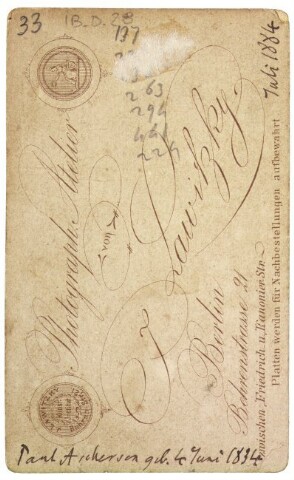 33
IB.D.28
197
263
294
441
224
Juli 1884
Photograph. Atelier
von
Z. Lawitzky.
Berlin
Behrenstrasse 21
zwischen Friedrich u. Kanonier Str.
Platten werden für Nachbestellungen aufbewahrt
Paul Ascherson geb. 4 Juni 1834